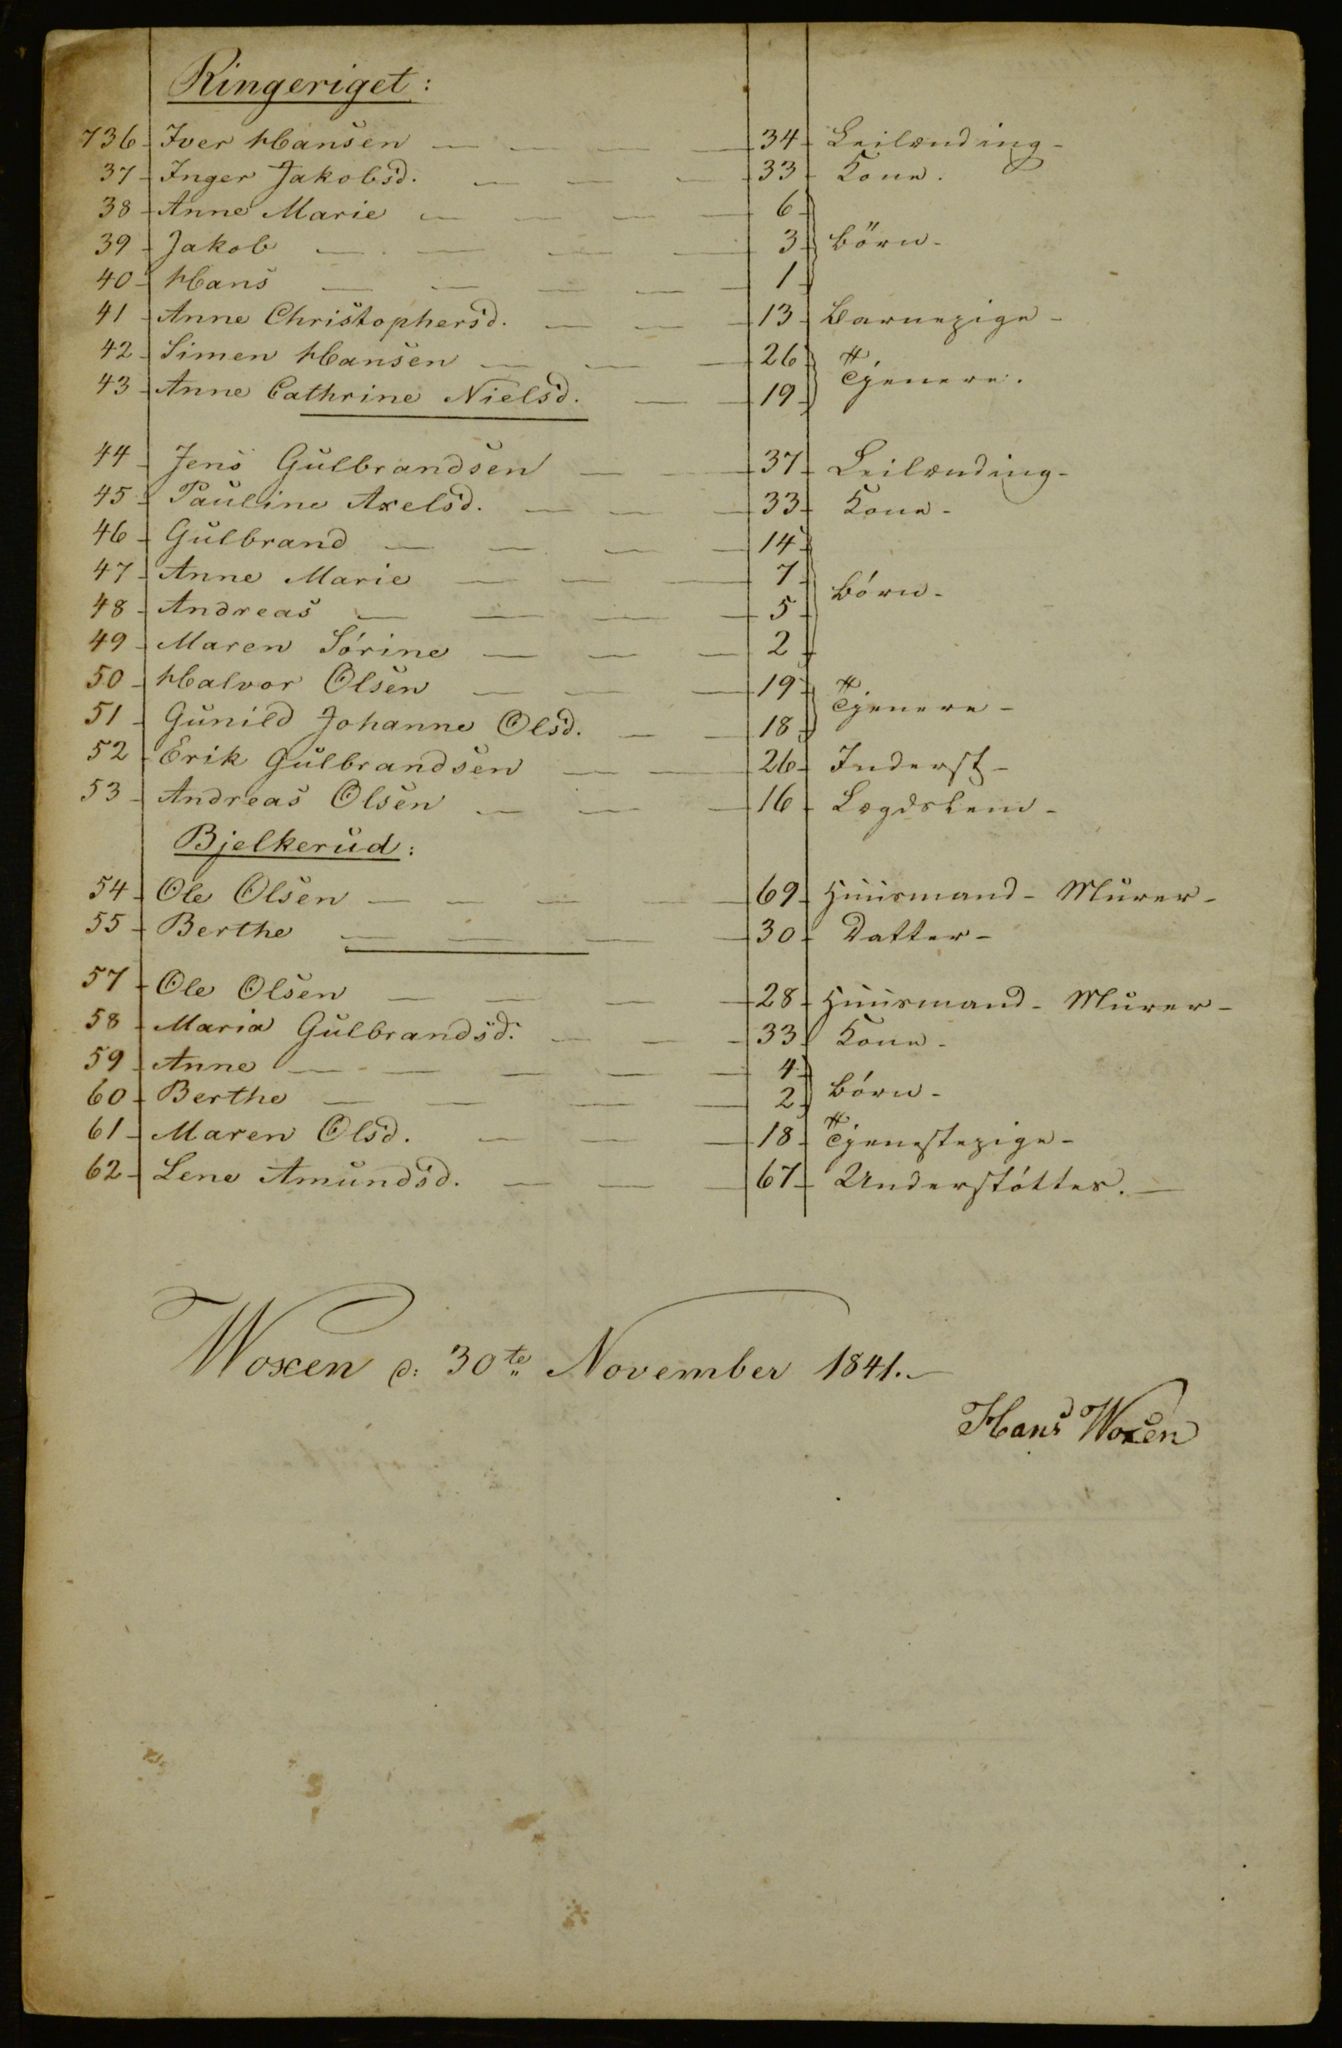 Ringeriget:
736 Iver Hansen 34 Leilænding
37 Inger Jakobsd. 33 Kone.
38 Anne Marie 6
39 Jakob 3 Börn
40 Hans 1
41 Anne Christophersd. 13 Barnepige
42 Simen Hansen 26
43 Anne Cathrine Nielsd. 19 Tjenere.
44 Jens Gulbrandsen 37 Leilænding
45 Pauline Axelsd. 33 Kone
46 Gulbrand 14
47 Anne Marie 7 Börn
48 Andreas 5
49 Maren Sörine 2
50 Halvor Olsen 19 Tjenere
51 Gunild Johanne Olsd. 18
52 Erik Gulbrandsen 26 Inderst
53 Andreas Olsen 16 Lægdslem
Bjelkerud:
54 Ole Olsen 69 Huusmand - Murer
55 Berthe 30 Datter
57 Ole Olsen 28 Huusmand - Murer
58 Maria Gulbrandsd. 33 Kone
59 Anne 4 Börn
60 Berthe 2
61 Maren Olsd. 18 Tjenestepige
62 Lene Amundsd. 67 Understöttes.
Woxen d: 30te November 1841.
Hans Woxen